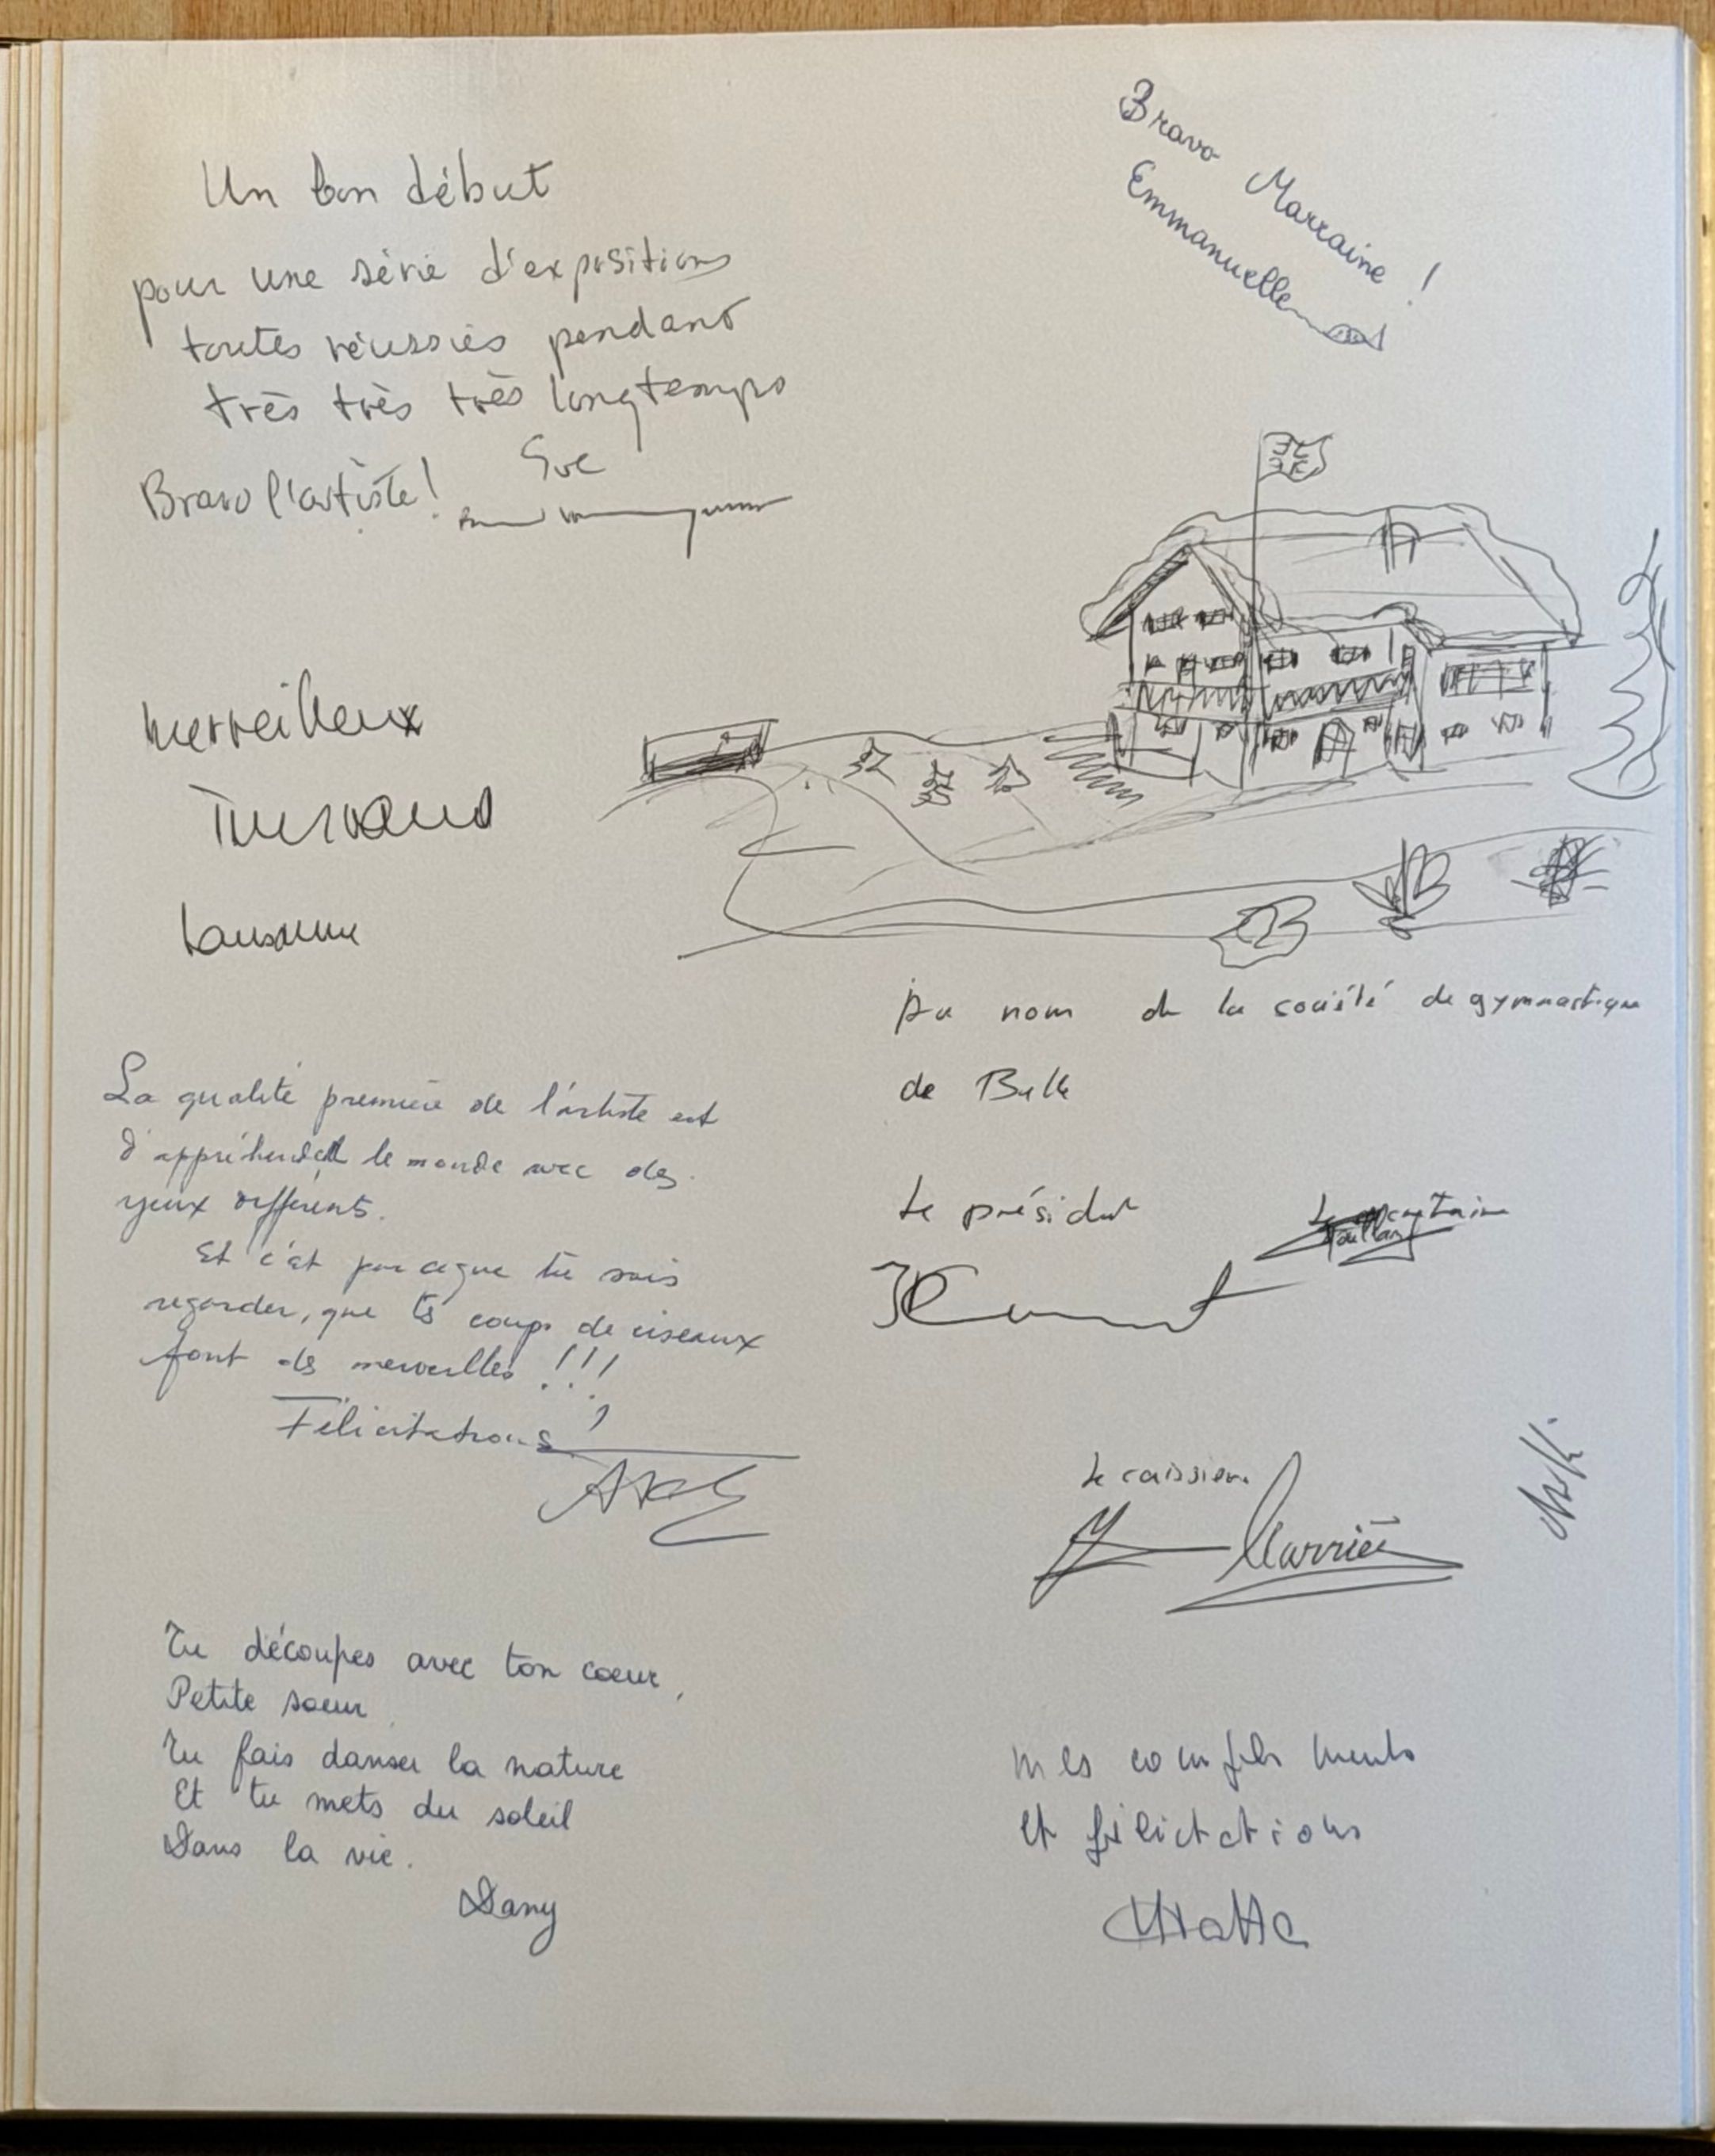 Un bon début
pour une série d'expositions
toutes réussies pendant
très très très longtemps
Bravo l'artiste!
Bravo Marraine !
Emmanuelle
Merveilleux
Lausanne
Au nom de la société de gymnastique
de Bulle
Le président
Le caissier
La qualité première de l'artiste est
d'appréhender le monde avec des
yeux différents.
Et c'est parceque tu sais
regarder, que ts coups de ciseaux
font des merveilles !!!
Félicitations !
Tu découpes avec ton coeur,
Petite soeur
Tu fais danser la nature
Et tu mets du soleil
Dans la vie.
Dany
mes compliments
et félicitations